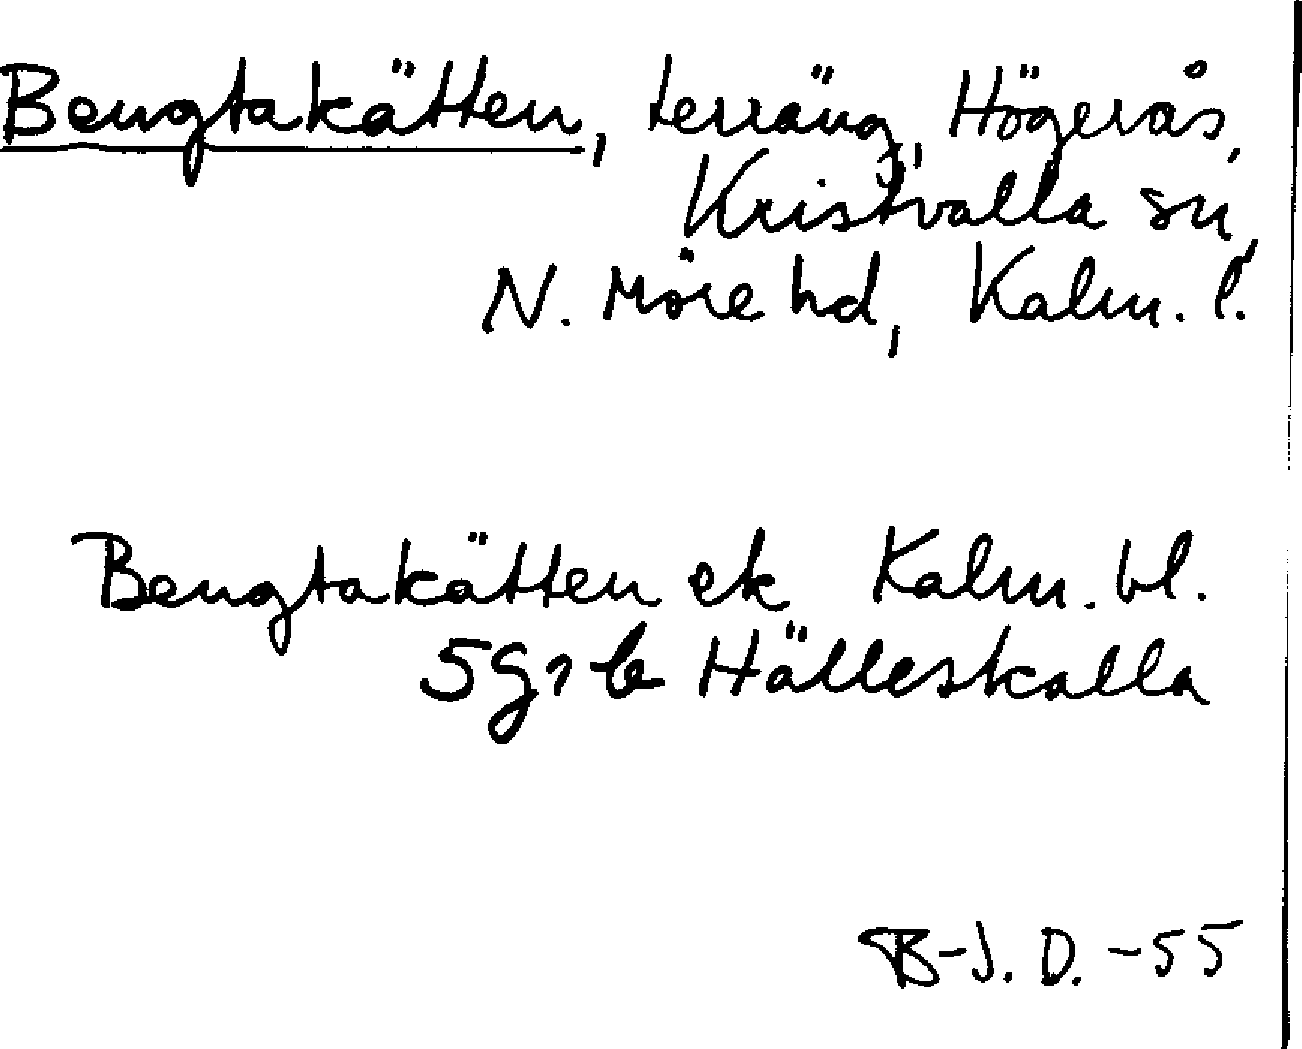 Bengtakätten, terräng, Högerås,
Kristvalla sn,
N. Möre hd, Kalm. l.
Bengtakätten ek Kalm. bl.
5g, b Hälleskalla
B-J. D. -55